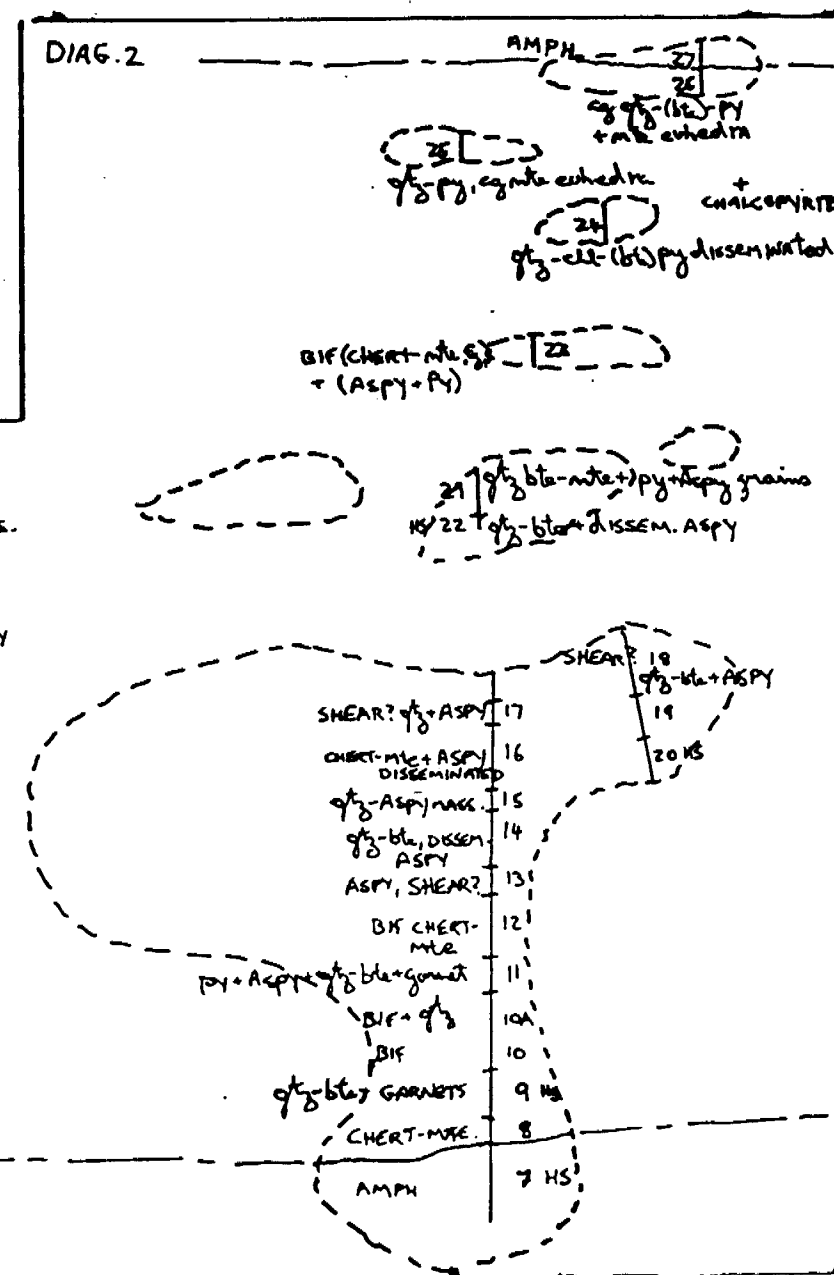 DIAG. 2
AMPH.
27
26
cg qtz-(bte)-py
+ mte euhedra
25
qtz-py, cg mte euhedra
+
CHALCOPYRITE
24
qtz-chl-(bte) py disseminated
BIF (CHERT-mte
+ (ASPY + PY)
23
21 qtz bte-mte + py + Aspy grains
HS 22 qtz-bte + DISSEM. ASPY
S.
Y
SHEAR? 18
qtz-bte + ASPY
19
20 HS
SHEAR? qtz + ASPY 17
CHERT-Mte + ASPY 16
DISSEMINATED
qtz-Aspy MASS. 15
qtz-bte, DISSEM. 14
ASPY
ASPY, SHEAR? 13
BIF CHERT- 12
Mte
py + Aspy + qtz-bte + garnet 11
BIF + qtz 10A
BIF 10
qtz-bte, GARNETS 9 HS
CHERT-MTE. 8
AMPH 7 HS